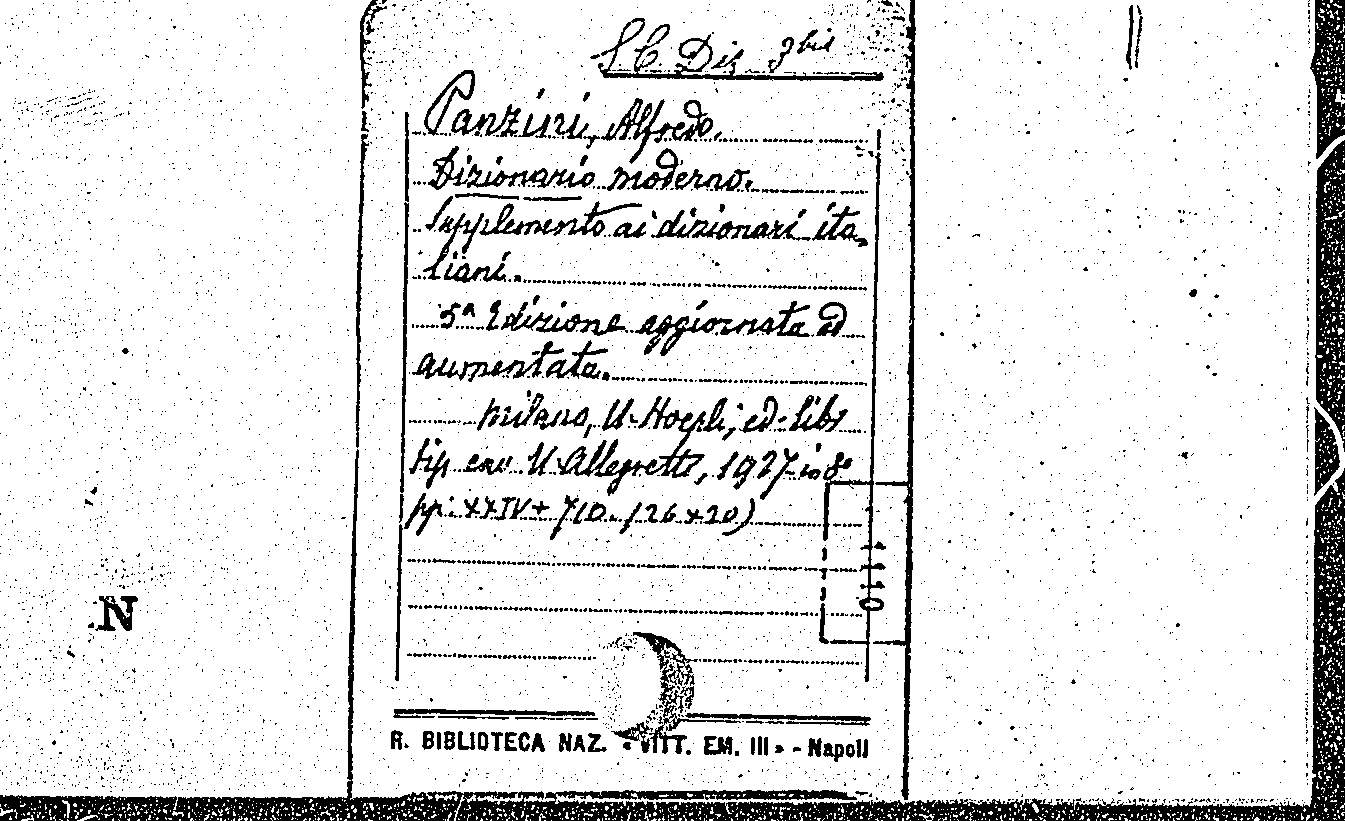 S.C. Diz 3 bis
Panzini, Alfredo.
Dizionario moderno.
Supplemento ai dizionari ita-
liani.
5ª Edizione aggiornata ed
aumentata.
Milano, U. Hoepli, ed-libr
tip. U. Allegretti, 1927 in 8°
pp: XXIV + 710. (26 x 20)
1110
N
R. BIBLIOTECA NAZ. « VITT. EM. III » - Napoli